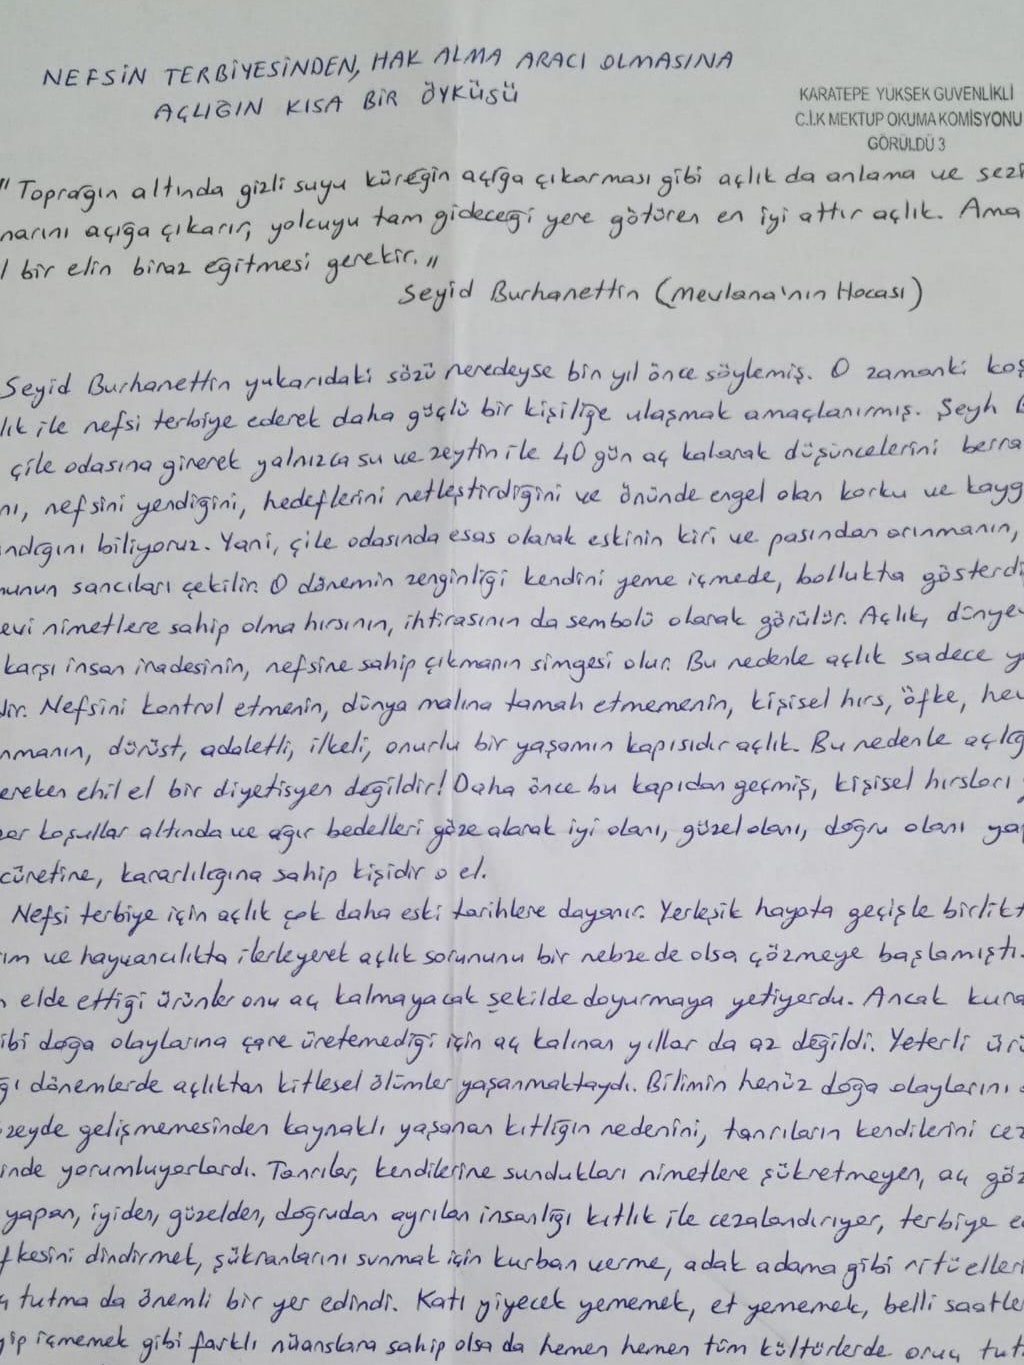 NEFSİN TERBİYESİNDEN, HAK ALMA ARACI OLMASINA
AÇLIĞIN KISA BİR ÖYKÜSÜ
KARATEPE YÜKSEK GÜVENLİKLİ
C.İ.K MEKTUP OKUMA KOMİSYONU
GÖRÜLDÜ 3
"Toprağın altında gizli suyu küreğin açığa çıkarması gibi açlık da anlama ve sezi
narını açığa çıkarır, yolcuyu tam gideceği yere götüren en iyi attır açlık. Ama
l bir elin biraz eğitmesi gerekir."
Seyid Burhanettin (Mevlana'nın Hocası)
Seyid Burhanettin yukarıdaki sözü neredeyse bin yıl önce söylemiş. O zamanki koş
lık ile nefsi terbiye ederek daha güçlü bir kişiliğe ulaşmak amaçlanırmış. Şeyh
çile odasına girerek yalnızca su ve zeytin ile 40 gün aç kalarak düşüncelerini berra
nı, nefsini yendiğini, hedeflerini netleştirdiğini ve önünde engel olan korku ve kayg
ındığını biliyoruz. Yani, çile odasında esas olarak eskinin kiri ve pasından arınmanın,
munun sancıları çekilir. O dönemin zenginliği kendini yeme içmede, bollukta gösterdi
evi nimetlere sahip olma hırsının, ihtirasının da sembolü olarak görülür. Açlık, dünye
karşı insan iradesinin, nefsine sahip çıkmanın simgesi olur. Bu nedenle açlık sadece y
dir. Nefsini kontrol etmenin, dünya malına tamah etmemenin, kişisel hırs, öfke, hev
nmanın, dürüst, adaletli, ilkeli, onurlu bir yaşamın kapısıdır açlık. Bu nedenle açlığ
ereken ehil el bir diyetisyen değildir! Daha önce bu kapıdan geçmiş, kişisel hırsları
zor koşullar altında ve ağır bedelleri göze alarak iyi olanı, güzel olanı, doğru olanı yap
cüretine, kararlılığına sahip kişidir o el.
Nefsi terbiye için açlık çok daha eski tarihlere dayanır. Yerleşik hayata geçişle birlikt
ım ve hayvancılıkta ilerleyerek açlık sorununu bir nebze de olsa çözmeye başlamıştı.
n elde ettiği ürünler onu aç kalmayacak şekilde doyurmaya yetiyerdu. Ancak kura
ibi doğa olaylarına çare üretemediği için aç kalınan yıllar da az değildi. Yeterli ürü
ğı dönemlerde açlıktan kitlesel ölümler yaşanmaktaydı. Bilimin henüz doğa olaylarını
zeyde gelişmemesinden kaynaklı yaşanan kıtlığın nedenini, tanrıların kendilerini cez
inde yorumluyorlardı. Tanrılar, kendilerine sundukları nimetlere şükretmeyen, aç göz
yapan, iyiden, güzelden, doğrudan ayrılan insanlığı kıtlık ile cezalandırıyor, terbiye e
fkesini dindirmek, şükranlarını sunmak için kurban verme, adak adama gibi ritüeller
ç tutma da önemli bir yer edindi. Katı yiyecek yememek, et yememek, belli saatle
yip içmemek gibi farklı nüanslara sahip olsa da hemen hemen tüm kültürlerde oruç tut